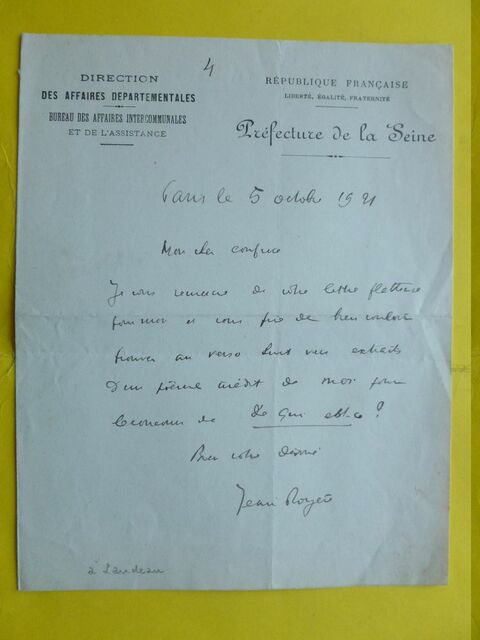 4
DIRECTION
DES AFFAIRES DEPARTEMENTALES
BUREAU DES AFFAIRES INTERCOMMUNALES
ET DE L'ASSISTANCE
RÉPUBLIQUE FRANÇAISE
LIBERTÉ, ÉGALITÉ, FRATERNITÉ
Préfecture de la Seine
Paris le 5 octobre 1921
Mon cher confrère
Je vous remercie de votre lettre flatteuse
pour moi et vous prie de bien vouloir
trouver au verso extraits
d'un poème inédit de moi pour
le concours de De qui est-ce ?
Bien votre dévoué
Jean Royère
à Landeau